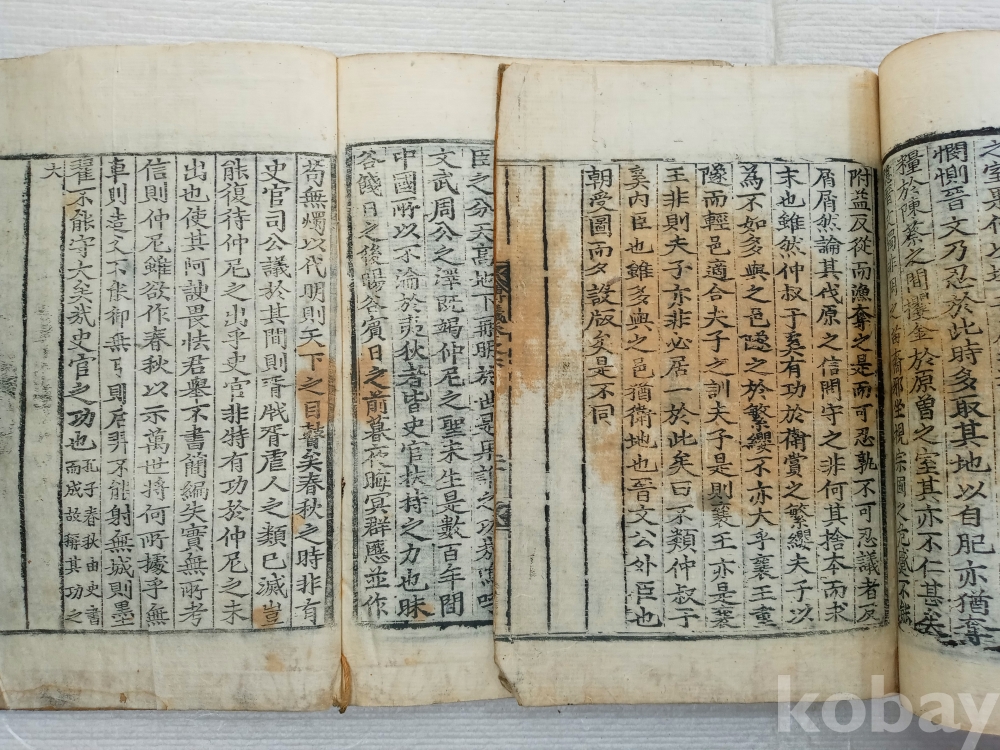 惻惻晉文乃忍於此時多取其地以自肥亦猶奪
糧於陳蔡之間攫金於原曾之室其亦不仁甚矣
附益反從而漁奪之是而可忍孰不可忍議者反
屑屑然論其伐原之信問守之非何其捨本而求
末也雖然仲叔于奚有功於衛賞之繁纓夫子以
為不如多與之邑隧之於繁纓不亦大乎襄王重
隧而輕邑適合夫子之訓夫子是則襄王亦是襄
王非則夫子亦非必居一於此矣曰不類仲叔于
奚内臣也雖多與之邑猶衛地也晉文公外臣也
朝受圖而夕設版矣是不同
臣之分天高地下彌明於世是果誰之功哉嗚呼
文武周公之澤既竭仲尼之聖未生是數百年間
中國所以不淪於夷狄者皆史官扶持之力也昧
谷餞日之後暘谷賓日之前暮夜晦冥群慝並作
苟無燭以代明則天下之目瞽矣春秋之時非有
史官司公議於其間則胥戕胥虐人之類已滅豈
能復待仲尼之出乎史官非特有功於仲尼之未
出也使其阿諛畏怯君舉不書簡編失實無所考
信則仲尼雖欲作春秋以示萬世將何所據乎無
車則造父不能御無弓則后羿不能射無城則墨
翟不能守大矣哉史官之功也孔子春秋由史書
而成故稱其功之
大
kobay